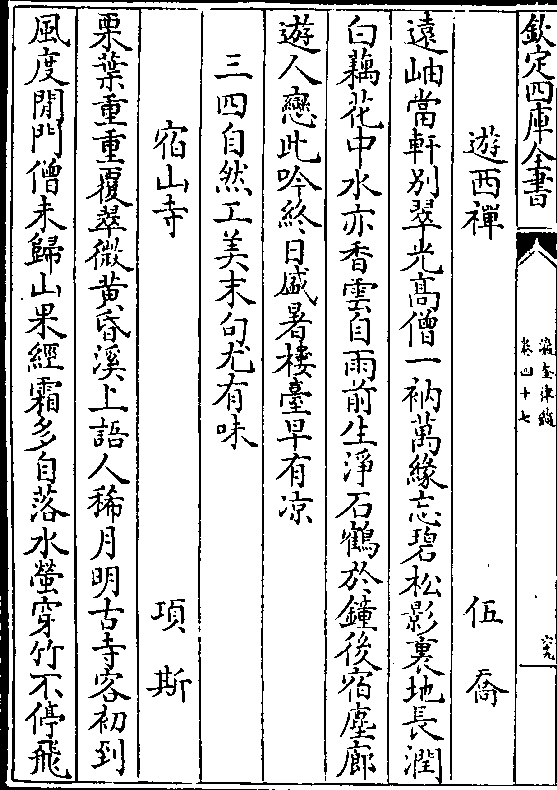 欽定四庫全書
瀛奎律髓
卷四十七
遊西禪　伍喬
遠岫當軒別翠光髙僧一衲萬緣忘碧松影裏地長潤
白藕花中水亦香雲自雨前生淨石鶴於鐘後宿塵廊
遊人戀此吟終日盛暑樓臺早有凉
三四自然工美末句尤有味
宿山寺　項斯
栗葉重重覆翠微黄昏溪上語人稀月明古寺客初到
風度閒門僧未歸山果經霜多自落水螢穿竹不停飛